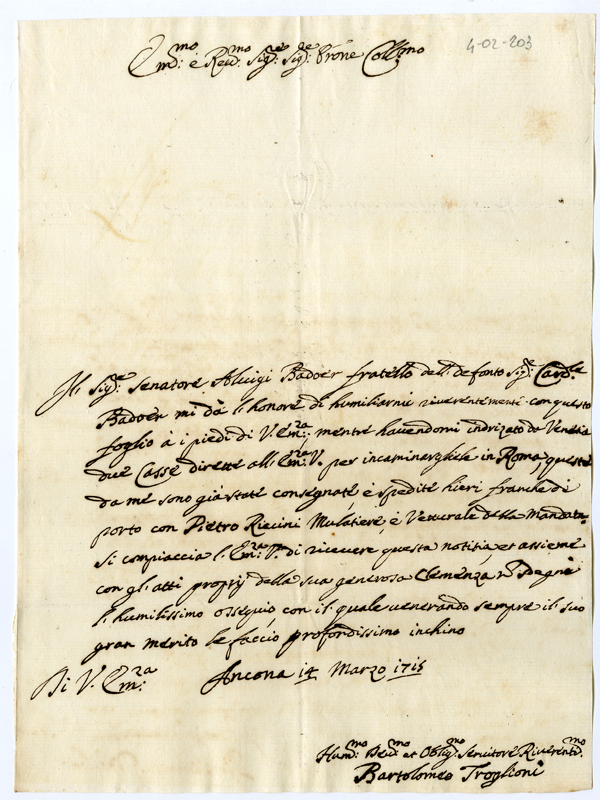 4-02-203
Em:mo e Reu:mo Sig:re Sig:re Prone Coll:mo
Il Sig:re Senatore Aluigi Badoer fratello dell defonto Sig:re Card:le
Badoer mi dà l'honore di humiliarmi riuerentemente con questo
foglio à i piedi di V. Em:za, mentre hauendomi indrizato da Venetia
due Casse dirette all Em:za V. per incaminarglile in Roma, queste
da me sono già state consegnate, è spedite hieri franche di
porto con Pietro Riccini Mulatiere, è Vetturale della Mandata.
Si compiaccia l'Em:za V.ra di riceuere questa notitia, et assieme
con gl'atti proprij della sua generosa Clemenza, n sdegni
l'humilissimo ossequio con il quale uenerando sempre il suo
gran merito le faccio profondissimo inchino
Di V. Em:za Ancona 14 Marzo 1715
Hum:mo Deu:mo et Oblig:mo Seruitore Riuerent:mo
Bartolomeo Troglioni